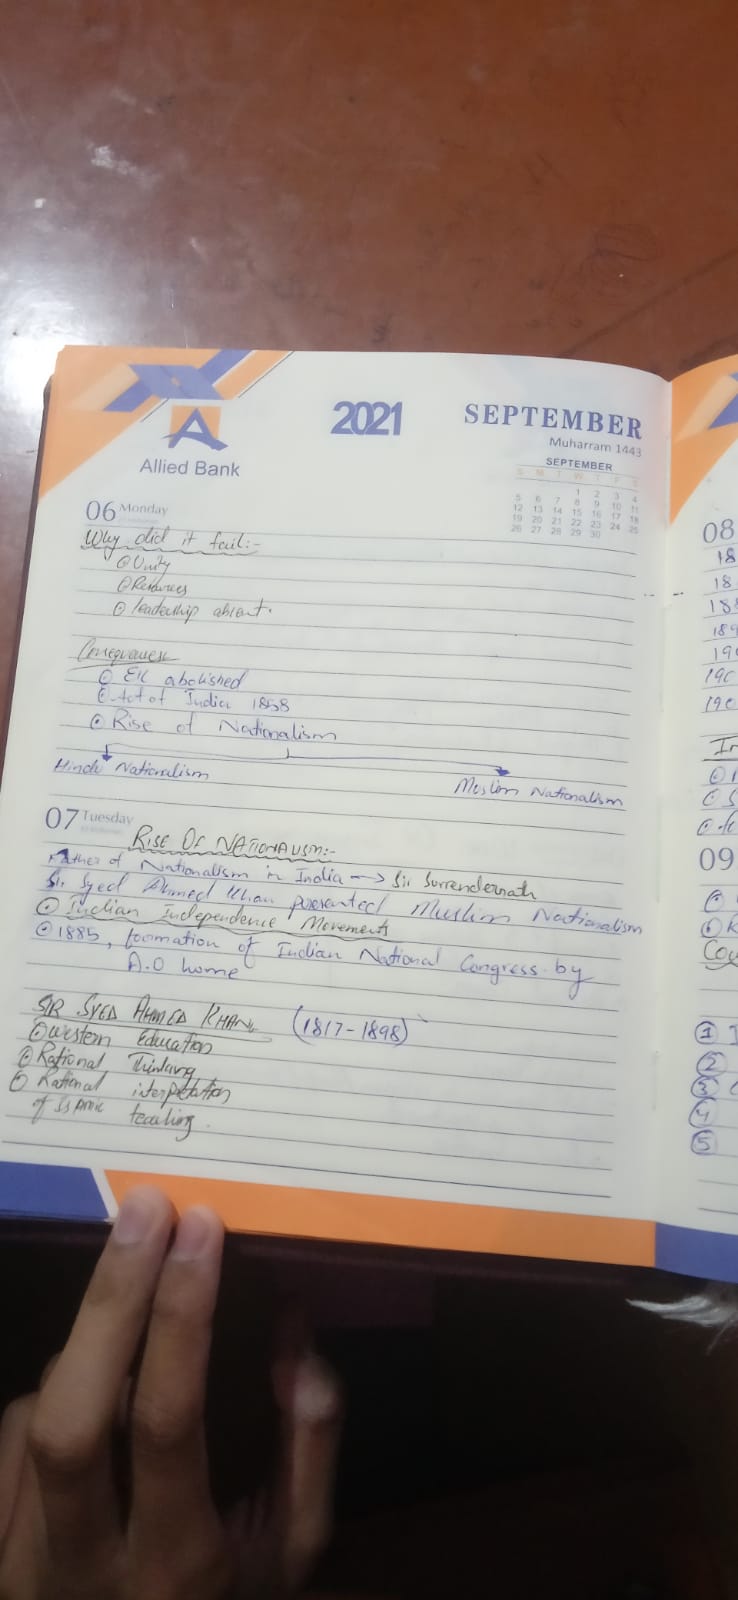 2021
SEPTEMBER
Muharram 1443
Allied Bank
SEPTEMBER
S M T W T F S
1 2 3 4
5 6 7 8 9 10 11
12 13 14 15 16 17 18
19 20 21 22 23 24 25
26 27 28 29 30
06 Monday
Why did it fail:-
Unity
Resources
leadership absent.
Consequences
EIC abolished
Act of India 1858
Rise of Nationalism
Hindu Nationalism
Muslim Nationalism
07 Tuesday
RISE OF NATIONALISM:-
Father of Nationalism in India → Sir Surrendernath
Sir Syed Ahmed Khan presented Muslim Nationalism
Indian Independence Movement
1885, formation of Indian National Congress by
A.O home
SIR SYED AHMED KHAN (1817-1898)
Western Education
Rational Thinking
Rational interpretation
of Islamic teaching.
08
18
18
188
189
190
190
190
09
1
2
3
4
5